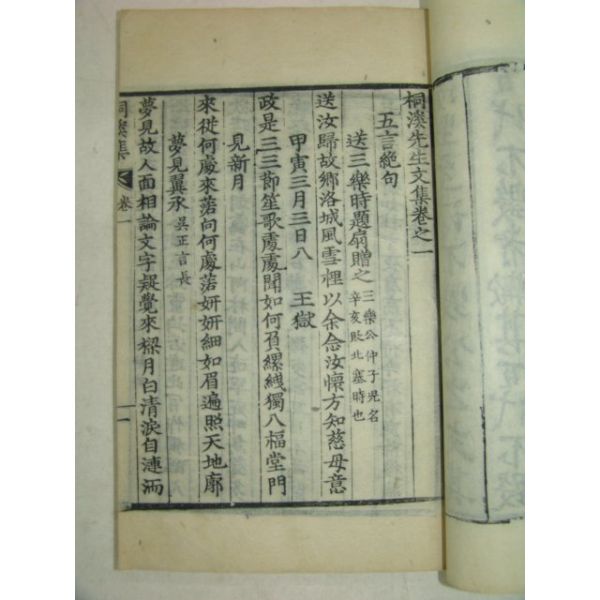 桐溪先生文集卷之一
五言絶句
送三樂時題扇贈之 三樂公仲子兒名辛亥貶北塞時也
送汝歸故鄉洛城風雪裡以余念汝懷方知慈母意
甲寅三月三日入 王獄
政是三三節笙歌處處聞如何負縲絏獨入福堂門
見新月
來從何處來落向何處落姸姸細如眉遍照天地廓
夢見翼承 吳正言長
夢見故人面相論文字疑覺來樑月白清淚自漣洏
桐溪集 卷一 一